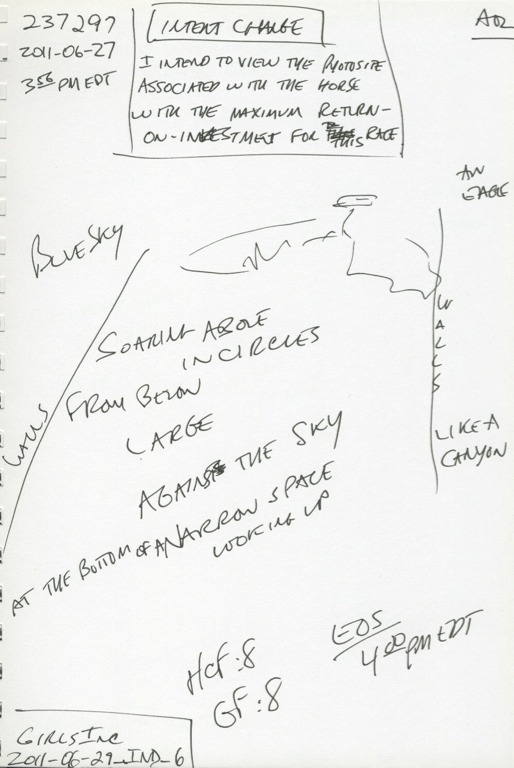 237297
2011-06-27
3:56 PM EDT
INTENT CHANGE
I INTEND TO VIEW THE PHOTOSITE
ASSOCIATED WITH THE HORSE
WITH THE MAXIMUM RETURN-
ON-INVESTMENT FOR THIS RACE
A02
AN
EAGLE
BLUE SKY
WALLS
SOARING ABOVE
IN CIRCLES
FROM BELOW
LARGE
AGAINST THE SKY
AT THE BOTTOM OF A NARROW SPACE
LOOKING UP
WALLS
LIKE A
CANYON
HCF:8
GF:8
EOS
4:00 PM EDT
GIRLSINC
2011-06-29_IND_6